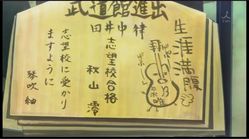 武道館進出
田井中律
生涯満腹
志望校合格
秋山澪
志望校に受かり
ますように
琴吹紬
TBS